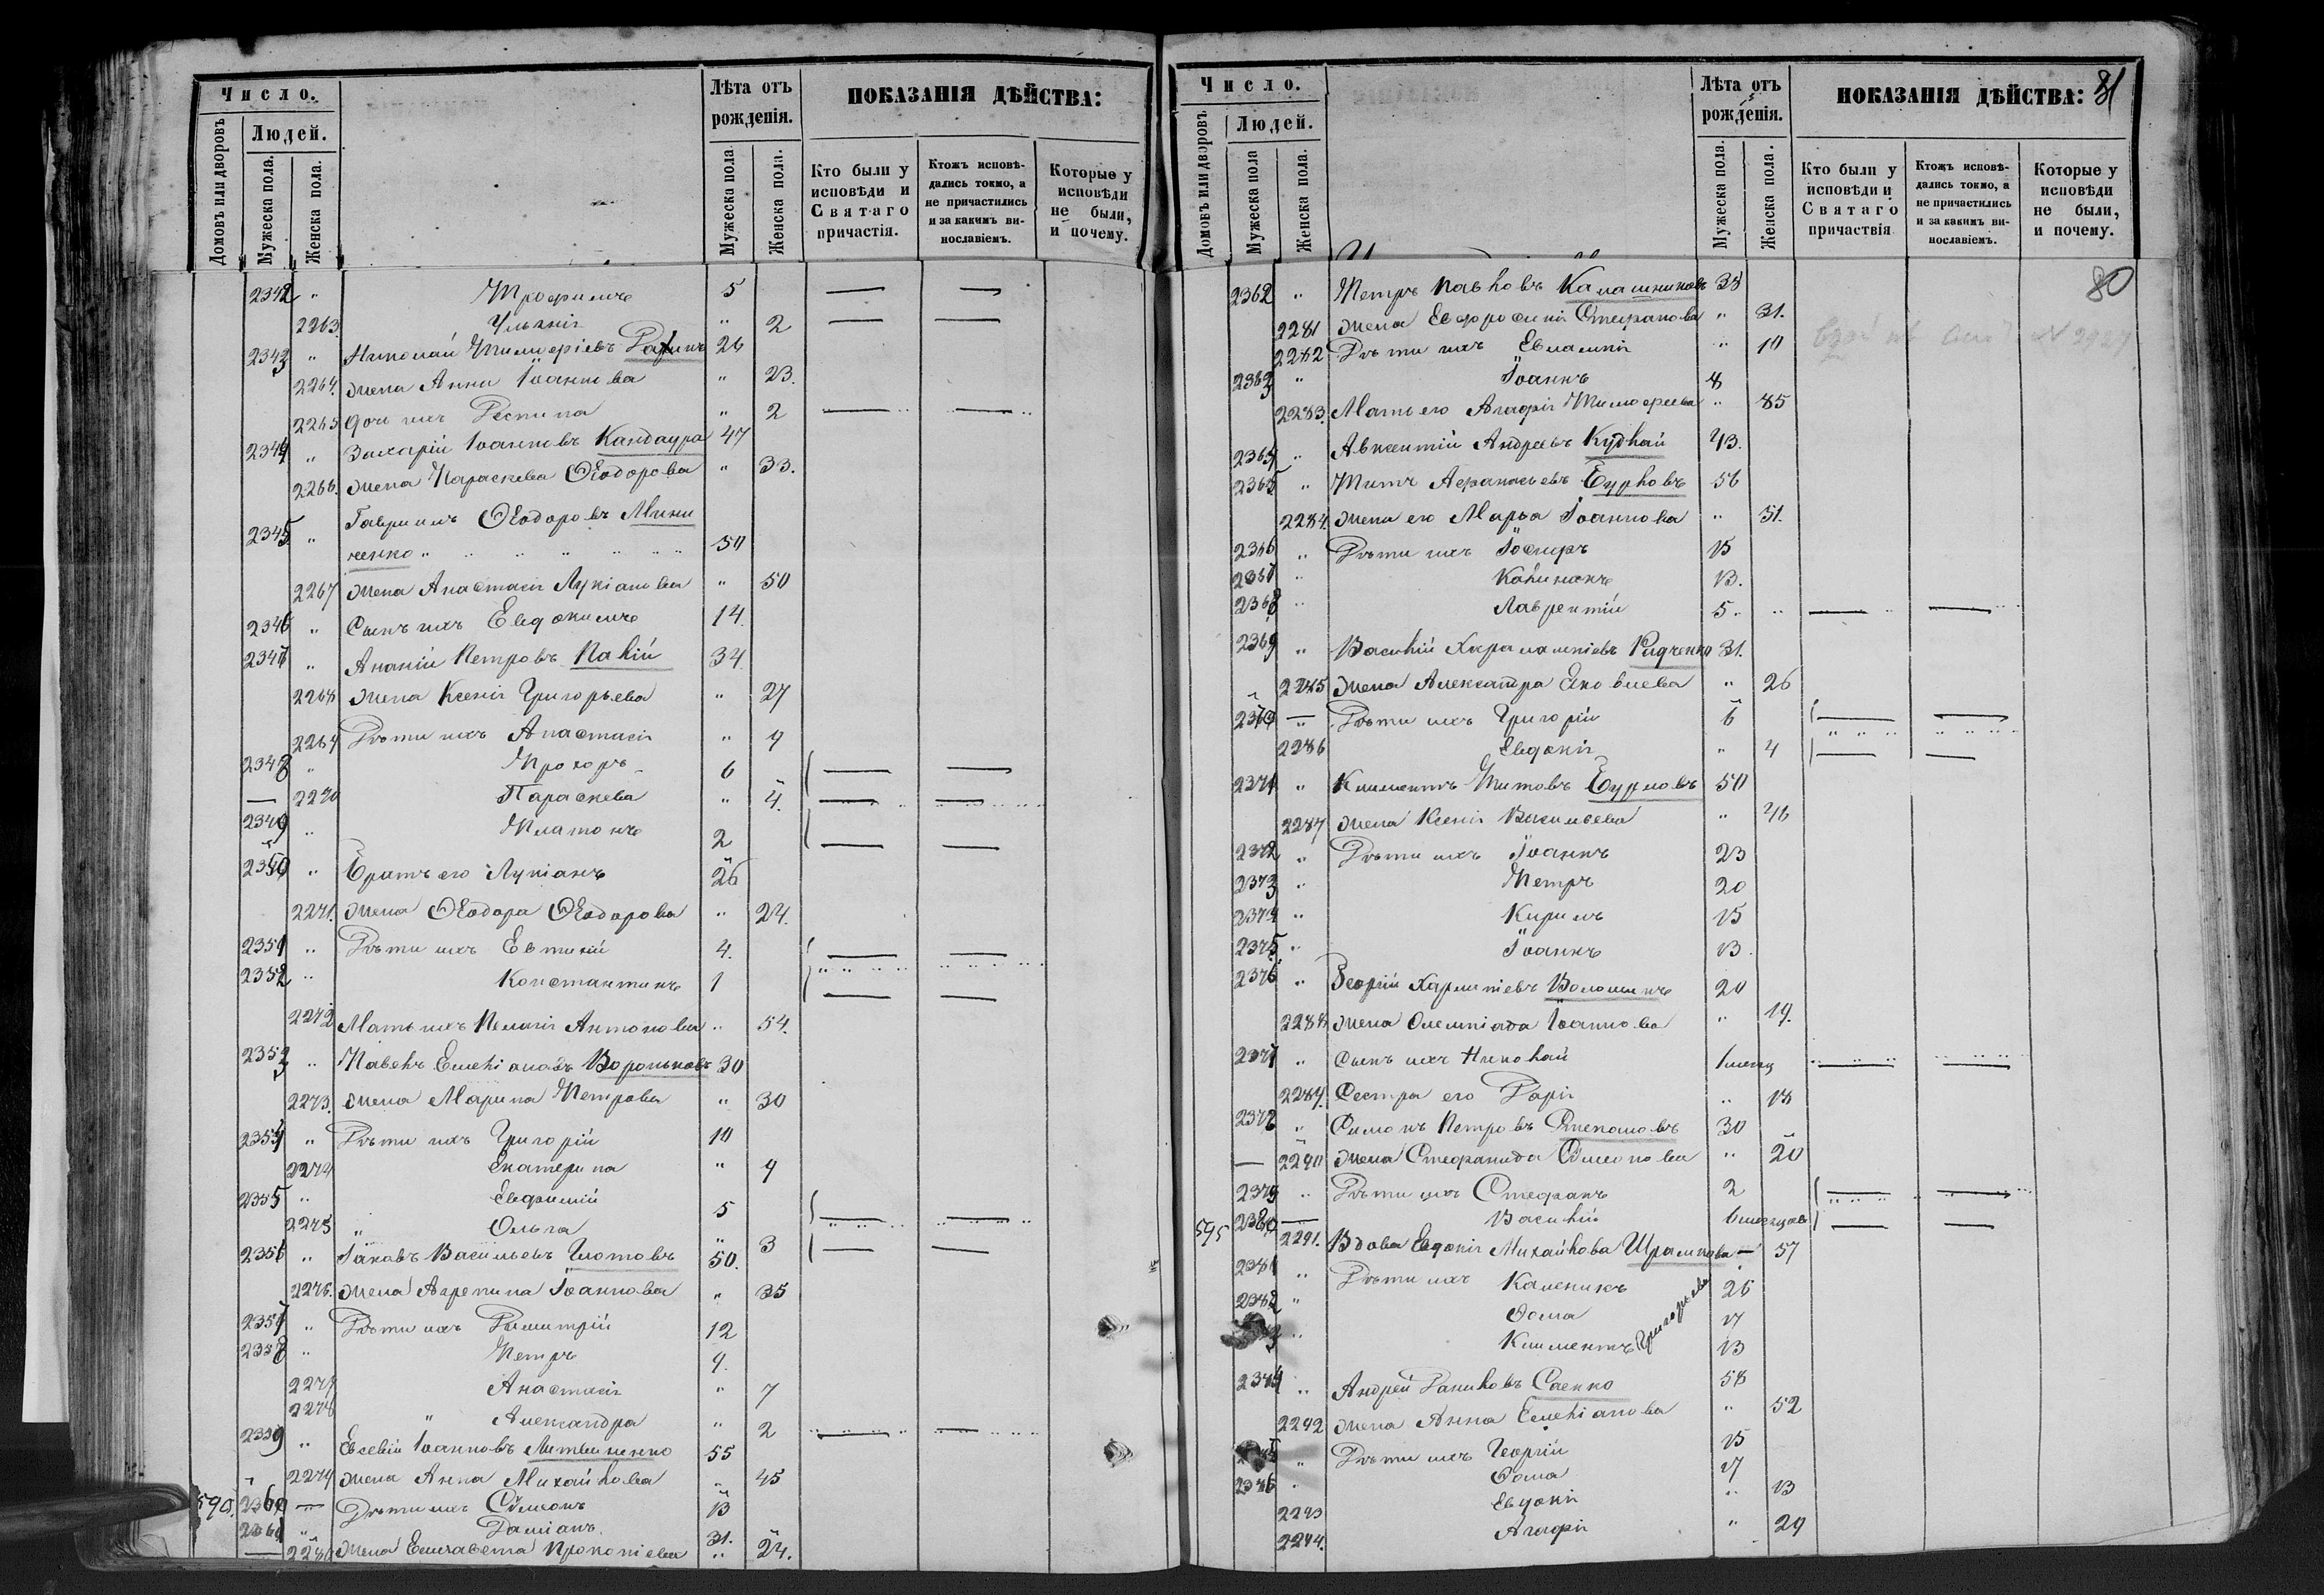 Число.
Людей.
Домовъ или дворовъ
Мужеска пола.
Женска пола.
Лѣта отъ
рожденія.
Мужеска пола.
Женска пола.
ПОКАЗАНІЯ ДѢЙСТВА:
Кто были у
исповѣди и
Святаго
причастія.
Ктожъ исповѣ-
дались токмо, а
не причастились
и за какимъ ви-
нославіемъ.
Которые у
исповѣди
не были,
и почему.
2342 " Трофимъ 5
2263 Ульянія " 2
2343 " Николай Тимоѳеіевъ 26
2264. жена Анна Іоаннова " 23.
2265 дочь ихъ " 2
2344 " Захарій Іоанновъ Кандаура 47
2266. жена Параскева Ѳеодорова " 33.
2345 " Гавріилъ Ѳеодоровъ Мини
ненко " " " " " " 50
2267 жена Анастасія Лукіанова " 50
2346 " Сынъ ихъ Евдокимъ 14
2347 " Ананій Петровъ Палій 34
2268 жена Ксенія Григорьева " 27
2269 Дѣти ихъ Анастасія " 9
2348 " Прохоръ 6
2270 Параскева " 4.
2349 " Платонъ 2
2350 " Братъ его Лукіанъ 26
2271. жена Ѳеодора Ѳеодорова " 24.
2351 " Дѣти ихъ Евтихій 4.
2352 " Константинъ 1
2272 Мать ихъ Пелагія Антонова " 54.
2353 " Павелъ Емеліановъ Вороньковъ 30
2273. жена Марина Петрова " 30
2354 " Дѣти ихъ Григорій 10
2274 Екатерина " 9
2355 " Евфимій 5
2275 " Ольга " 3
2356 " Іаковъ Васильевъ Глотовъ 50.
2276. жена Агрепина Іоаннова " 35
2357 " Дѣти ихъ Димитрій 12
2358 " Петръ 9.
2277 Анастасія " 7
2278 " Александра " 2
2359 " Евсевій Іоанновъ Литвиненко 55
2279 жена Анна Михайлова " 45
590. 2360 — Дѣти ихъ Сѵмеонъ 13
2361 " Даміанъ 31.
— 2280 жена Елисавета Прокопіева " 24.
Число.
Людей.
Домовъ или дворовъ
Мужеска пола
Женска пола.
Лѣта отъ
рожденія.
Мужеска пола.
Женска пола.
ПОКАЗАНІЯ ДѢЙСТВА: 81
Кто были у
исповѣди и
Святаго
причаствія
Ктожъ исповѣ-
дались токмо, а
не причастились
и за какимъ ви-
нославіемъ.
Которые у
исповѣди
не были,
и почему.
80
2362 " Петръ Павловъ Калашниковъ 38
2281 жена Евфросинія Стефанова " 31.
2282 Дѣти ихъ Евлампія " 10
2363 " Іоаннъ 8
2283. Мать его Агафія Тимоѳеева " 85
2364 " Авксентій Андреевъ Кудлай 43.
2365 " Титъ Аѳанасьевъ Бурловъ 56
2284. жена его Марѳа Іоаннова " 51.
2366 " Дѣти ихъ Іосифъ 15
2367 " Калиникъ 13.
2368 " Лаврентій 5. "
2369 " Василій Харлампіевъ Радченко 31.
2285 жена Александра Іяковлева " 26
2370 — Дѣти ихъ Григорій 6
2286 Евдокія " 4
2371 " Климентъ Титовъ Бурловъ 50
2287 жена Ксенія Васильева " 46
2372 " Дѣти ихъ Іоаннъ 23
2373 " Петръ 20
2374 " Кирилъ 15
2375 " Іоаннъ 13.
2376 " Георгій Харлампіевъ Волошинъ 20
2288 жена Олемпіада Іоаннова " 19.
2377 " Сынъ ихъ Николай 1 месяц
2289. Сестра его Дарія " 18
2378 " Симонъ Петровъ Степановъ 30
— 2290 жена Стефанида Сѵмеонова " 20
2379 " Дѣти ихъ Стефанъ 2
2380 — Василій 6 месяцовъ
595 2291. Вдова Евдокія Михайлова Шрамкова — 57
2381 " Дѣти ихъ Калиникъ 26
2382 " Ѳома 17
" Климентъ 13
Григорьевы
2384 " Андрей Даниловъ Саенко 58
2292 жена Анна Емеліанова " 52
" Дѣти ихъ Георгій 15
2386 " Ѳома 17
2293 Евдокія " 13
2294. Агафія " 29